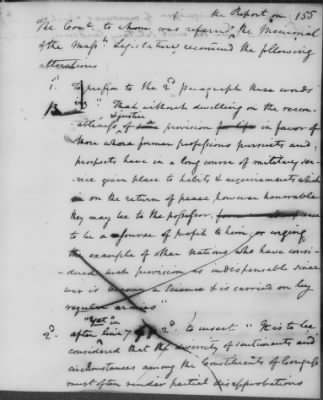 the Report on 155
The Comt. to whom was referred the Memorial
of the Masstts Legislature, recommend the following
alterations
1. To prefix to the 2d. paragraph these words
viz "That without dwelling on the reason-
ableness & justice of provision for life in favor of
those whose former professions pursuits and
prospects have in a long course of military ser-
vice given place to habits & acquirements which
on the return of peace however honorable
they may be to the possessor,
to be a source of profit to him, or urging
the example of other Nations who have consi-
dered such provision as indispensible since
war is become a science & is carried on by
regular armies"
2d. "Yet" in
after line 7 2d. to insert "It is to be
considered that the diversity of sentiments and
circumstances among the Constituents of Congress
must often render partial disapprobations